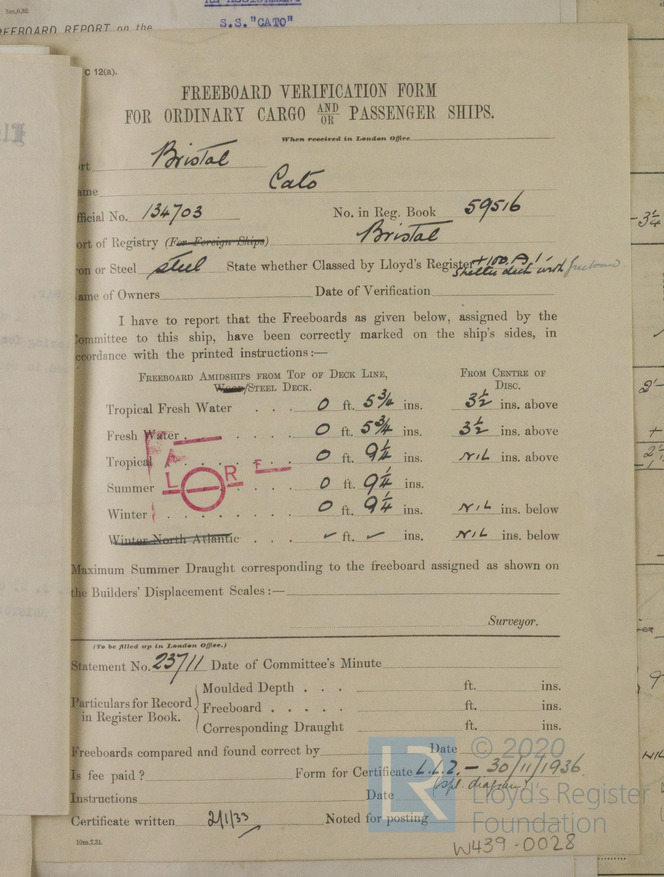 RE-ASSIGNMENT
S.S. "CATO"
3m,6,32.
FREEBOARD REPORT on the
C 12(a).
FREEBOARD VERIFICATION FORM
FOR ORDINARY CARGO AND/OR PASSENGER SHIPS.
When received in London Office
rt Bristol
ame Cato
fficial No. 134703 No. in Reg. Book 59516
ort of Registry (For Foreign Ships) Bristol
ron or Steel steel State whether Classed by Lloyd's Register +100.A.1
shelter deck with freeboard
ame of Owners Date of Verification
I have to report that the Freeboards as given below, assigned by the
Committee to this ship, have been correctly marked on the ship's sides, in
ccordance with the printed instructions:—
FREEBOARD AMIDSHIPS FROM TOP OF DECK LINE, FROM CENTRE OF
WOOD/STEEL DECK. DISC.
Tropical Fresh Water . . . 0 ft. 5 3/4 ins. 3 1/2 ins. above
Fresh Water . . . . . . 0 ft. 5 3/4 ins. 3 1/2 ins. above
Tropical . . . . . . 0 ft. 9 1/4 ins. NIL ins. above
Summer . . . . . . 0 ft. 9 1/4 ins.
Winter . . . . . . . 0 ft. 9 1/4 ins. NIL ins. below
Winter North Atlantic . . . ✓ ft. ✓ ins. NIL ins. below
F
A
L R F
Maximum Summer Draught corresponding to the freeboard assigned as shown on
the Builders' Displacement Scales:—
Surveyor.
(To be filled up in London Office.)
Statement No. 23711 Date of Committee's Minute
Particulars for Record in Register Book.
Moulded Depth . . . ft. ins.
Freeboard . . . . . ft. ins.
Corresponding Draught ft. ins.
Freeboards compared and found correct by Date
Is fee paid? Form for Certificate L.L.2. – 30/11/1936
(spl. diagram)
Instructions Date
Certificate written 2/1/33 Noted for posting
10m,7,31.
© 2020
Lloyd's Register
Foundation
W439-0028